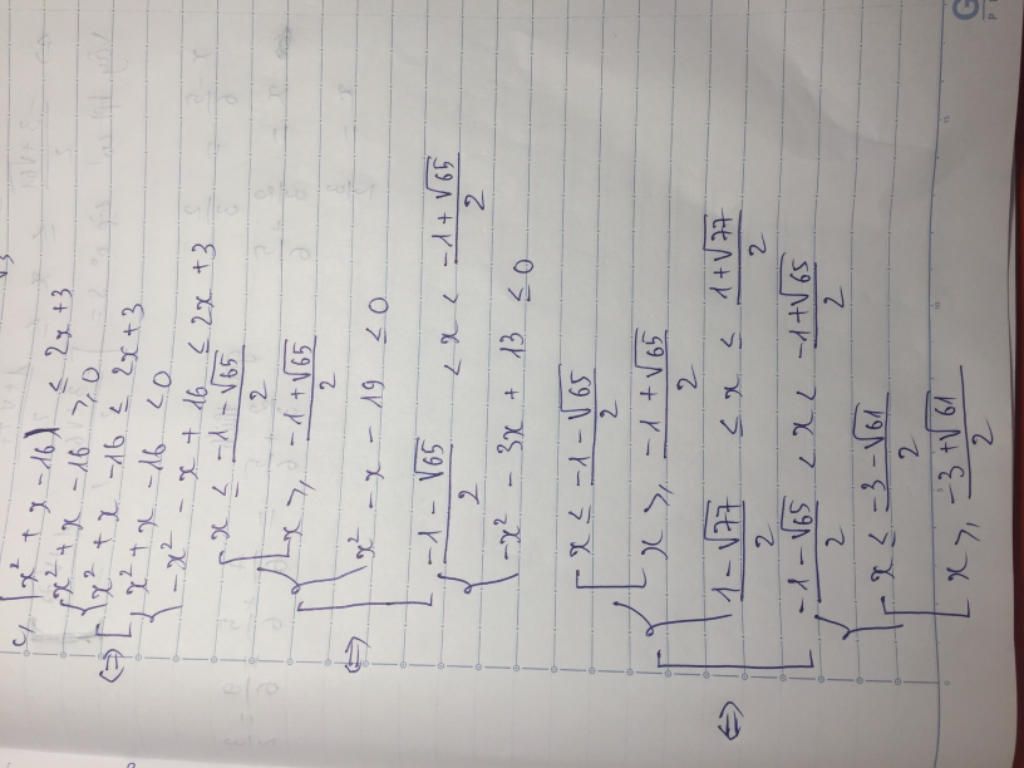 c, |x² + x - 16| ≤ 2x + 3
x² + x - 16 ≥ 0
⇔ x² + x - 16 ≤ 2x + 3
x² + x - 16 < 0
-x² - x + 16 ≤ 2x + 3
x ≤ \frac{-1-\sqrt{65}}{2}
x ≥ \frac{-1+\sqrt{65}}{2}
⇔ x² - x - 19 ≤ 0
\frac{-1-\sqrt{65}}{2} < x < \frac{-1+\sqrt{65}}{2}
-x² - 3x + 13 ≤ 0
x ≤ \frac{-1-\sqrt{65}}{2}
x ≥ \frac{-1+\sqrt{65}}{2}
⇔ \frac{1-\sqrt{77}}{2} ≤ x ≤ \frac{1+\sqrt{77}}{2}
\frac{-1-\sqrt{65}}{2} < x < \frac{-1+\sqrt{65}}{2}
x ≤ \frac{-3-\sqrt{61}}{2}
x ≥ \frac{-3+\sqrt{61}}{2}